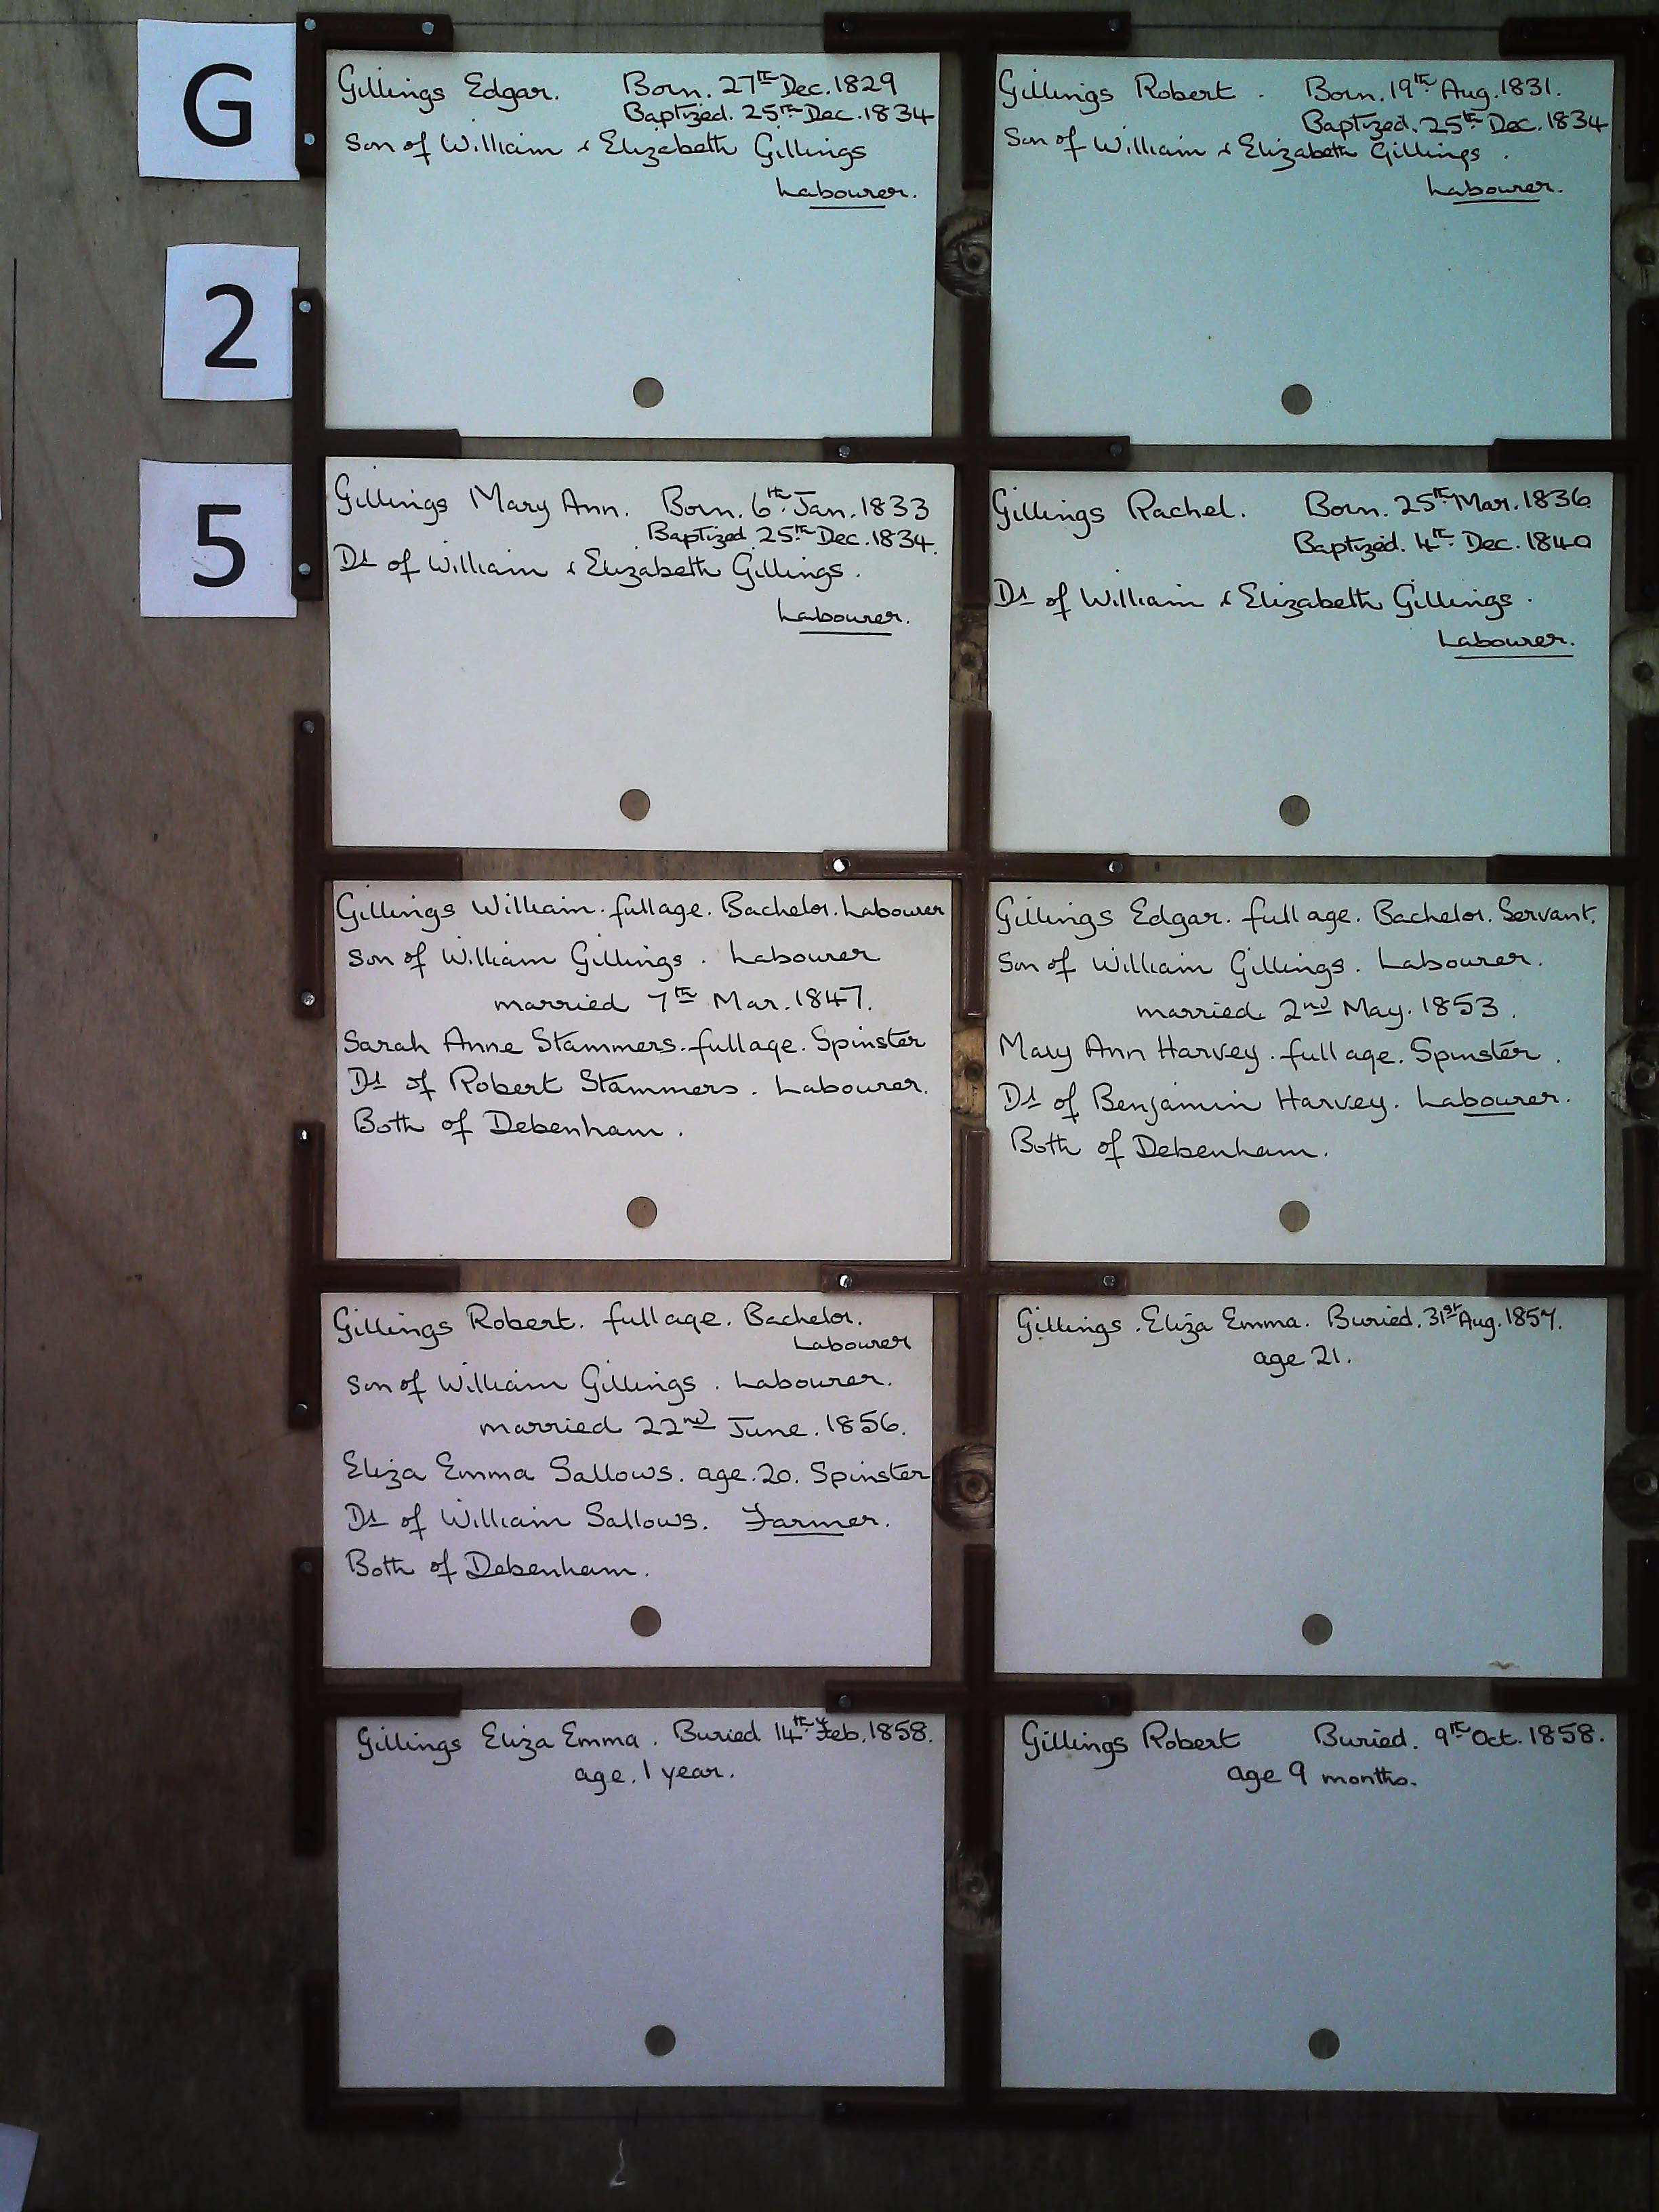 G
2
5
Gillings Edgar. Born. 27th Dec. 1829
Baptized. 25th Dec. 1834
Son of William & Elizabeth Gillings
Labourer.
Gillings Robert. Born. 19th Aug. 1831.
Baptized. 25th Dec. 1834
Son of William & Elizabeth Gillings.
Labourer.
Gillings Mary Ann. Born. 6th Jan. 1833
Baptized 25th Dec. 1834.
Dt of William & Elizabeth Gillings.
Labourer.
Gillings Rachel. Born. 25th Mar. 1836
Baptized. 4th Dec. 1840
Dt of William & Elizabeth Gillings.
Labourer.
Gillings William. full age. Bachelor. Labourer
Son of William Gillings. Labourer
married 7th Mar. 1847.
Sarah Anne Stammers. full age. Spinster
Dt of Robert Stammers. Labourer.
Both of Debenham.
Gillings Edgar. full age. Bachelor. Servant.
Son of William Gillings. Labourer.
married 2nd May. 1853.
Mary Ann Harvey. full age. Spinster.
Dt of Benjamin Harvey. Labourer.
Both of Debenham.
Gillings Robert. full age. Bachelor.
Labourer
Son of William Gillings. Labourer.
married 22nd June. 1856.
Eliza Emma Sallows. age. 20. Spinster
Dt of William Sallows. Farmer.
Both of Debenham.
Gillings. Eliza Emma. Buried. 31st Aug. 1857.
age 21.
Gillings Eliza Emma. Buried 14th Feb. 1858.
age. 1 year.
Gillings Robert Buried. 9th Oct. 1858.
age 9 months.